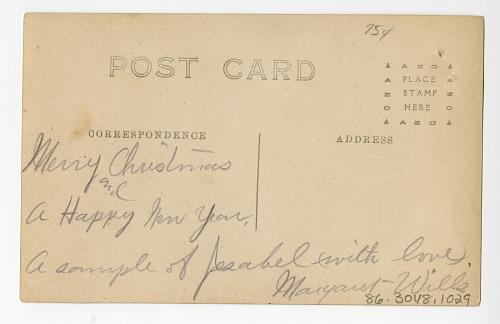 75¢
POST CARD
AZO
PLACE
STAMP
HERE
AZO
CORRESPONDENCE
ADDRESS
Merry Christmas
and
A Happy New Year.
A sample of Jesabel with love.
Margaret Wills
86.3048.1029